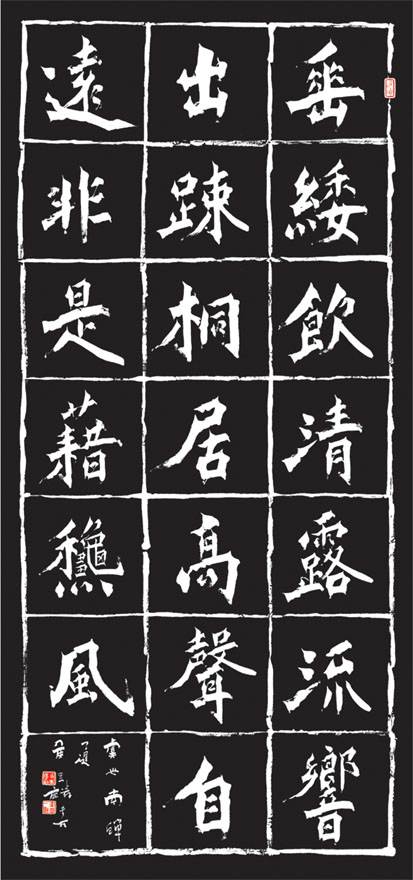 垂緌飲清露流響
出踈桐居高聲自
遠非是藉龝風
虞世南蟬